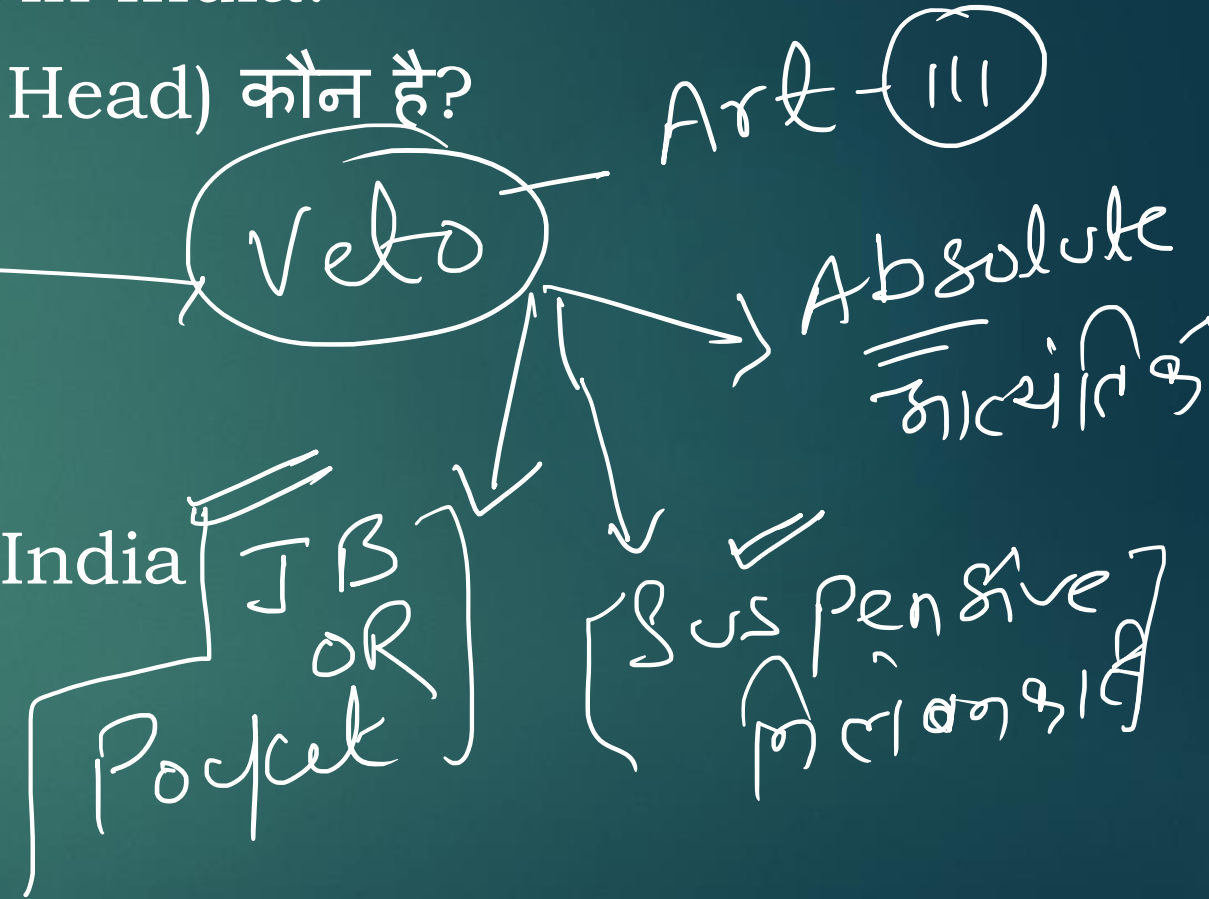 in India?
Head) कौन है?
Art - 111
Veto
Absolute
आत्यंतिक
India
JB
OR
Pocket
Suspensive
निलंबनकारी